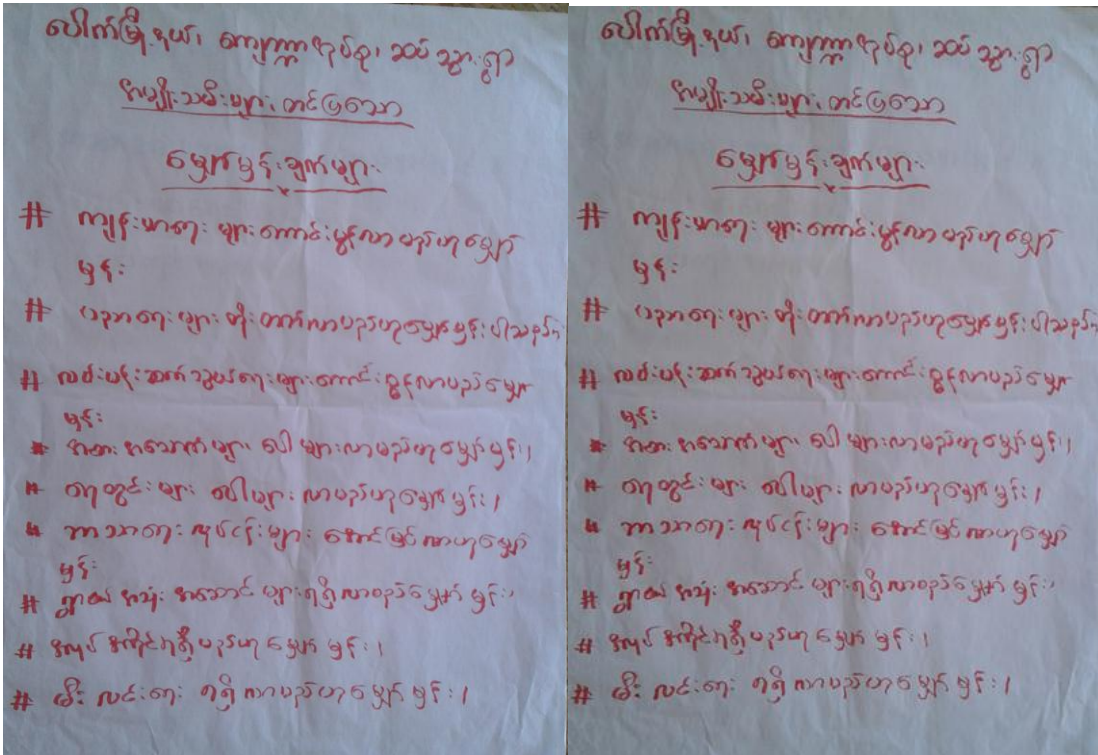 ပေါက်မြို့နယ်၊ ကျေးရွာအုပ်စု၊ ဆပ်သွားရွာ
အမျိုးသမီးများ တင်ပြသော
မျှော်မှန်းချက်များ
# ကျန်းမာရေးများ ကောင်းမွန်လာမည်ဟု မျှော်
မှန်း
# ပညာရေးများ တိုးတက်လာမည်ဟု မျှော်မှန်းပါသည်။
# လမ်းပန်းဆက်သွယ်ရေးများ ကောင်းမွန်လာမည် မျှော်
မှန်း
# အစားအသောက်များ ပေါများလာမည်ဟု မျှော်မှန်း၊
# ရေတွင်းများ ပေါများလာမည်ဟု မျှော်မှန်း၊
# ဘာသာရေးလုပ်ငန်းများ အောင်မြင်လာဟု မျှော်
မှန်း
# ရွာ အသုံးအဆောင်များ ရရှိလာမည် မျှော်မှန်း၊
# အလုပ်အကိုင်ရရှိမည်ဟု မျှော်မှန်း၊
# မီးလင်းရေး ရရှိလာမည်ဟု မျှော်မှန်း၊
ပေါက်မြို့နယ်၊ ကျေးရွာအုပ်စု၊ ဆပ်သွားရွာ
အမျိုးသမီးများ တင်ပြသော
မျှော်မှန်းချက်များ
# ကျန်းမာရေးများ ကောင်းမွန်လာမည်ဟု မျှော်
မှန်း
# ပညာရေးများ တိုးတက်လာမည်ဟု မျှော်မှန်းပါသည်။
# လမ်းပန်းဆက်သွယ်ရေးများ ကောင်းမွန်လာမည် မျှော်
မှန်း
# အစားအသောက်များ ပေါများလာမည်ဟု မျှော်မှန်း၊
# ရေတွင်းများ ပေါများလာမည်ဟု မျှော်မှန်း၊
# ဘာသာရေးလုပ်ငန်းများ အောင်မြင်လာဟု မျှော်
မှန်း
# ရွာ အသုံးအဆောင်များ ရရှိလာမည် မျှော်မှန်း၊
# အလုပ်အကိုင်ရရှိမည်ဟု မျှော်မှန်း၊
# မီးလင်းရေး ရရှိလာမည်ဟု မျှော်မှန်း၊